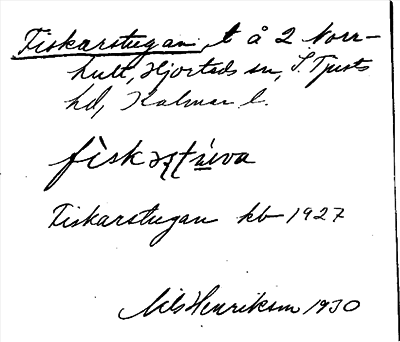 Fiskarstugan, t å 2 Norr-
hult, Hjorteds sn, S. Tjusts
hd, Kalmar l.
Fiskarstugan kb 1927
Nils Henrikson 1930